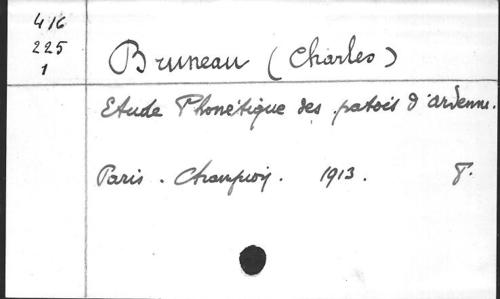 416
225
1
Bruneau (Charles)
Etude Phonétique des patois d'Ardenne.
Paris. Champion. 1913. 8.